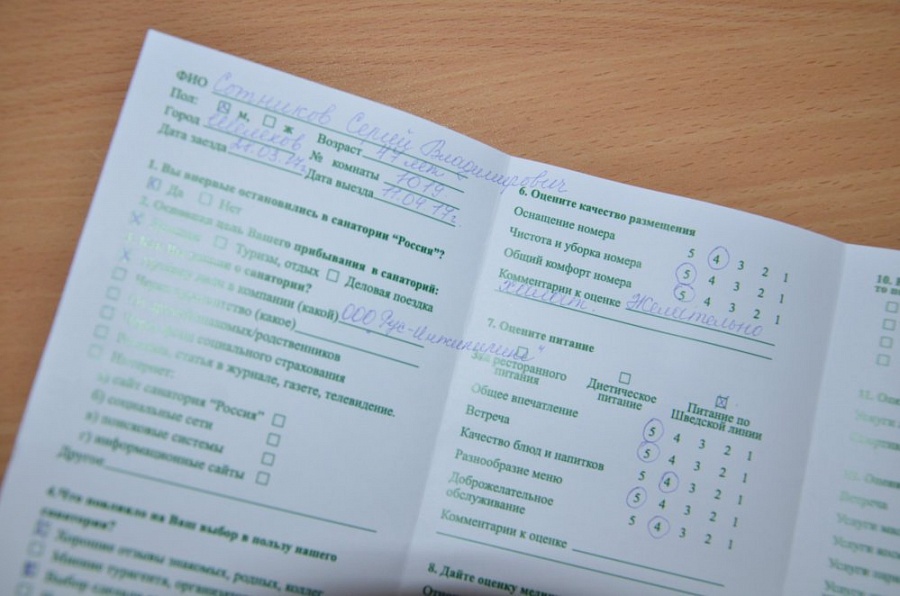 ФИО Сотников Сергей Владимирович
Пол: м, ж Возраст 47 лет
Город Шелехов № комнаты 1019
Дата заезда 28.03.17г Дата выезда 11.04.17г.
1. Вы впервые остановились в санатории "Россия"?
Да Нет
2. Основная цель Вашего прибывания в санаторий:
Туризм, отдых Деловая поездка
о санатории?
в компании (какой) ООО Рус-Инжиниринг"
(какое)
знакомых/родственников
социального страхования
статья в журнале, газете, телевидение.
Интернет:
а) сайт санатория "Россия"
б) социальные сети
в) поисковые системы
г) информационные сайты
Другое
4. Что повлияло на Ваш выбор в пользу нашего
санатория?
Хорошие отзывы знакомых, родных, коллег
Мнение турагента,
Выбор
6. Оцените качество размещения
Оснащение номера 5 4 3 2 1
Чистота и уборка номера 5 4 3 2 1
Общий комфорт номера 5 4 3 2 1
Комментарии к оценке Желательно
халат.
7. Оцените питание
Зал ресторанного питания
Диетическое питание
Питание по Шведской линии
Общее впечатление 5 4 3 2 1
Встреча 5 4 3 2 1
Качество блюд и напитков 5 4 3 2 1
Разнообразие меню 5 4 3 2 1
Доброжелательное
обслуживание 5 4 3 2 1
Комментарии к оценке
8. Дайте оценку
10.
то
11.
Встреча
Услуги
Услуги
Услуги